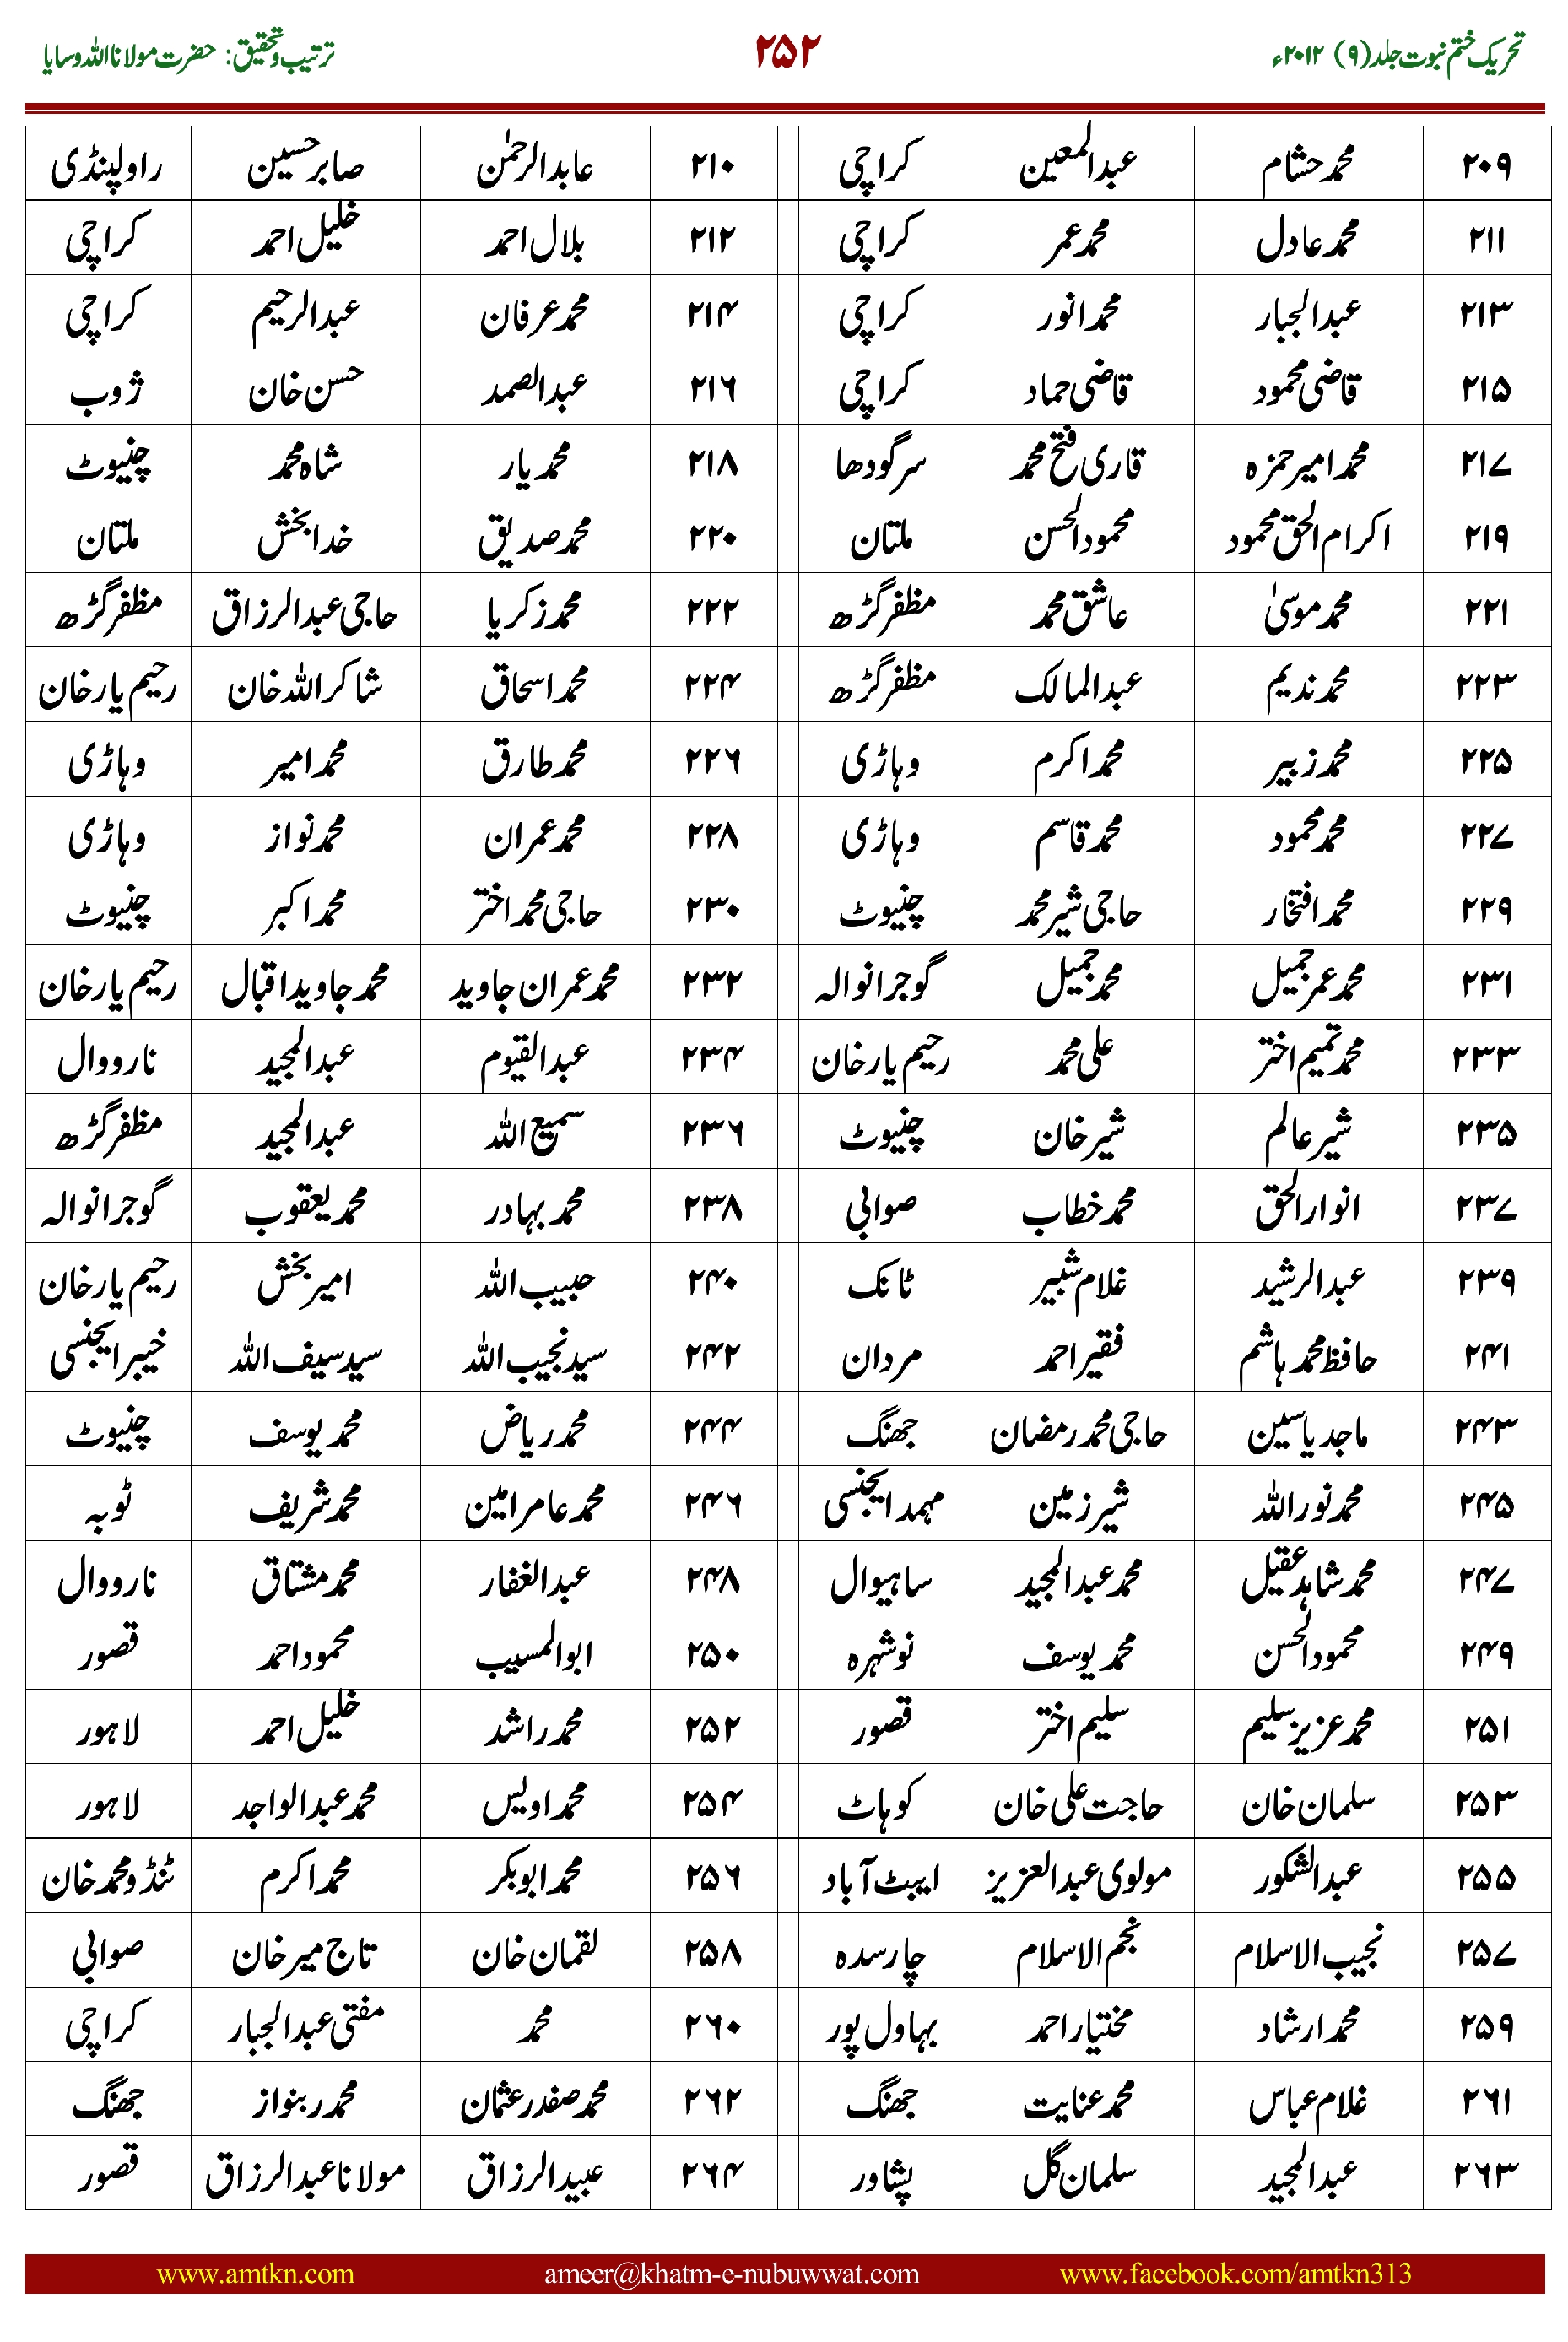 تحریک ختم نبوت جلد (۹) ۲۰۱۲ء ۲۵۲ ترتیب و تحقیق: حضرت مولانا اللہ وسایا
۲۰۹ محمد حشام عبدالمعین کراچی ۲۱۰ عابدالرحمٰن صابر حسین راولپنڈی
۲۱۱ محمد عادل محمد عمر کراچی ۲۱۲ بلال احمد خلیل احمد کراچی
۲۱۳ عبدالجبار محمد انور کراچی ۲۱۴ محمد عرفان عبدالرحیم کراچی
۲۱۵ قاضی محمود قاضی حماد کراچی ۲۱۶ عبدالصمد حسن خان ژوب
۲۱۷ محمد امیر حمزہ قاری فتح محمد سرگودھا ۲۱۸ محمد یار شاہ محمد چنیوٹ
۲۱۹ اکرام الحق محمود محمود الحسن ملتان ۲۲۰ محمد صدیق خدا بخش ملتان
۲۲۱ محمد موسیٰ عاشق محمد مظفر گڑھ ۲۲۲ محمد زکریا حاجی عبدالرزاق مظفر گڑھ
۲۲۳ محمد ندیم عبدالمالک مظفر گڑھ ۲۲۴ محمد اسحاق شاکر اللہ خان رحیم یار خان
۲۲۵ محمد زبیر محمد اکرم وہاڑی ۲۲۶ محمد طارق محمد امیر وہاڑی
۲۲۷ محمد محمود محمد قاسم وہاڑی ۲۲۸ محمد عمران محمد نواز وہاڑی
۲۲۹ محمد افتخار حاجی شیر محمد چنیوٹ ۲۳۰ حاجی محمد اختر محمد اکبر چنیوٹ
۲۳۱ محمد عمر جمیل محمد جمیل گوجرانوالہ ۲۳۲ محمد عمران جاوید محمد جاوید اقبال رحیم یار خان
۲۳۳ محمد تمیم اختر علی محمد رحیم یار خان ۲۳۴ عبدالقیوم عبدالمجید نارووال
۲۳۵ شیر عالم شیر خان چنیوٹ ۲۳۶ سمیع اللہ عبدالمجید مظفر گڑھ
۲۳۷ انوار الحق محمد خطاب صوابی ۲۳۸ محمد بہادر محمد یعقوب گوجرانوالہ
۲۳۹ عبدالرشید غلام شبیر ٹانک ۲۴۰ حبیب اللہ امیر بخش رحیم یار خان
۲۴۱ حافظ محمد ہاشم فقیر احمد مردان ۲۴۲ سید نجیب اللہ سید سیف اللہ خیبر ایجنسی
۲۴۳ ماجد یاسین حاجی محمد رمضان جھنگ ۲۴۴ محمد ریاض محمد یوسف چنیوٹ
۲۴۵ محمد نور اللہ شیر زمین مہمد ایجنسی ۲۴۶ محمد عامر امین محمد شریف ٹوبہ
۲۴۷ محمد شاہد عقیل محمد عبدالمجید ساہیوال ۲۴۸ عبدالغفار محمد مشتاق نارووال
۲۴۹ محمود الحسن محمد یوسف نوشہرہ ۲۵۰ ابوالمسیب محمود احمد قصور
۲۵۱ محمد عزیز سلیم سلیم اختر قصور ۲۵۲ محمد راشد خلیل احمد لاہور
۲۵۳ سلمان خان حاجت علی خان کوہاٹ ۲۵۴ محمد اویس محمد عبدالواجد لاہور
۲۵۵ عبدالشکور مولوی عبدالعزیز ایبٹ آباد ۲۵۶ محمد ابوبکر محمد اکرم ٹنڈو محمد خان
۲۵۷ نجیب الاسلام نجم الاسلام چارسدہ ۲۵۸ لقمان خان تاج میر خان صوابی
۲۵۹ محمد ارشاد مختیار احمد بہاول پور ۲۶۰ محمد مفتی عبدالجبار کراچی
۲۶۱ غلام عباس محمد عنایت جھنگ ۲۶۲ محمد صفدر عثمان محمد ربنواز جھنگ
۲۶۳ عبدالمجید سلمان گل پشاور ۲۶۴ عبیدالرزاق مولانا عبدالرزاق قصور
www.amtkn.com ameer@khatm-e-nubuwwat.com www.facebook.com/amtkn313